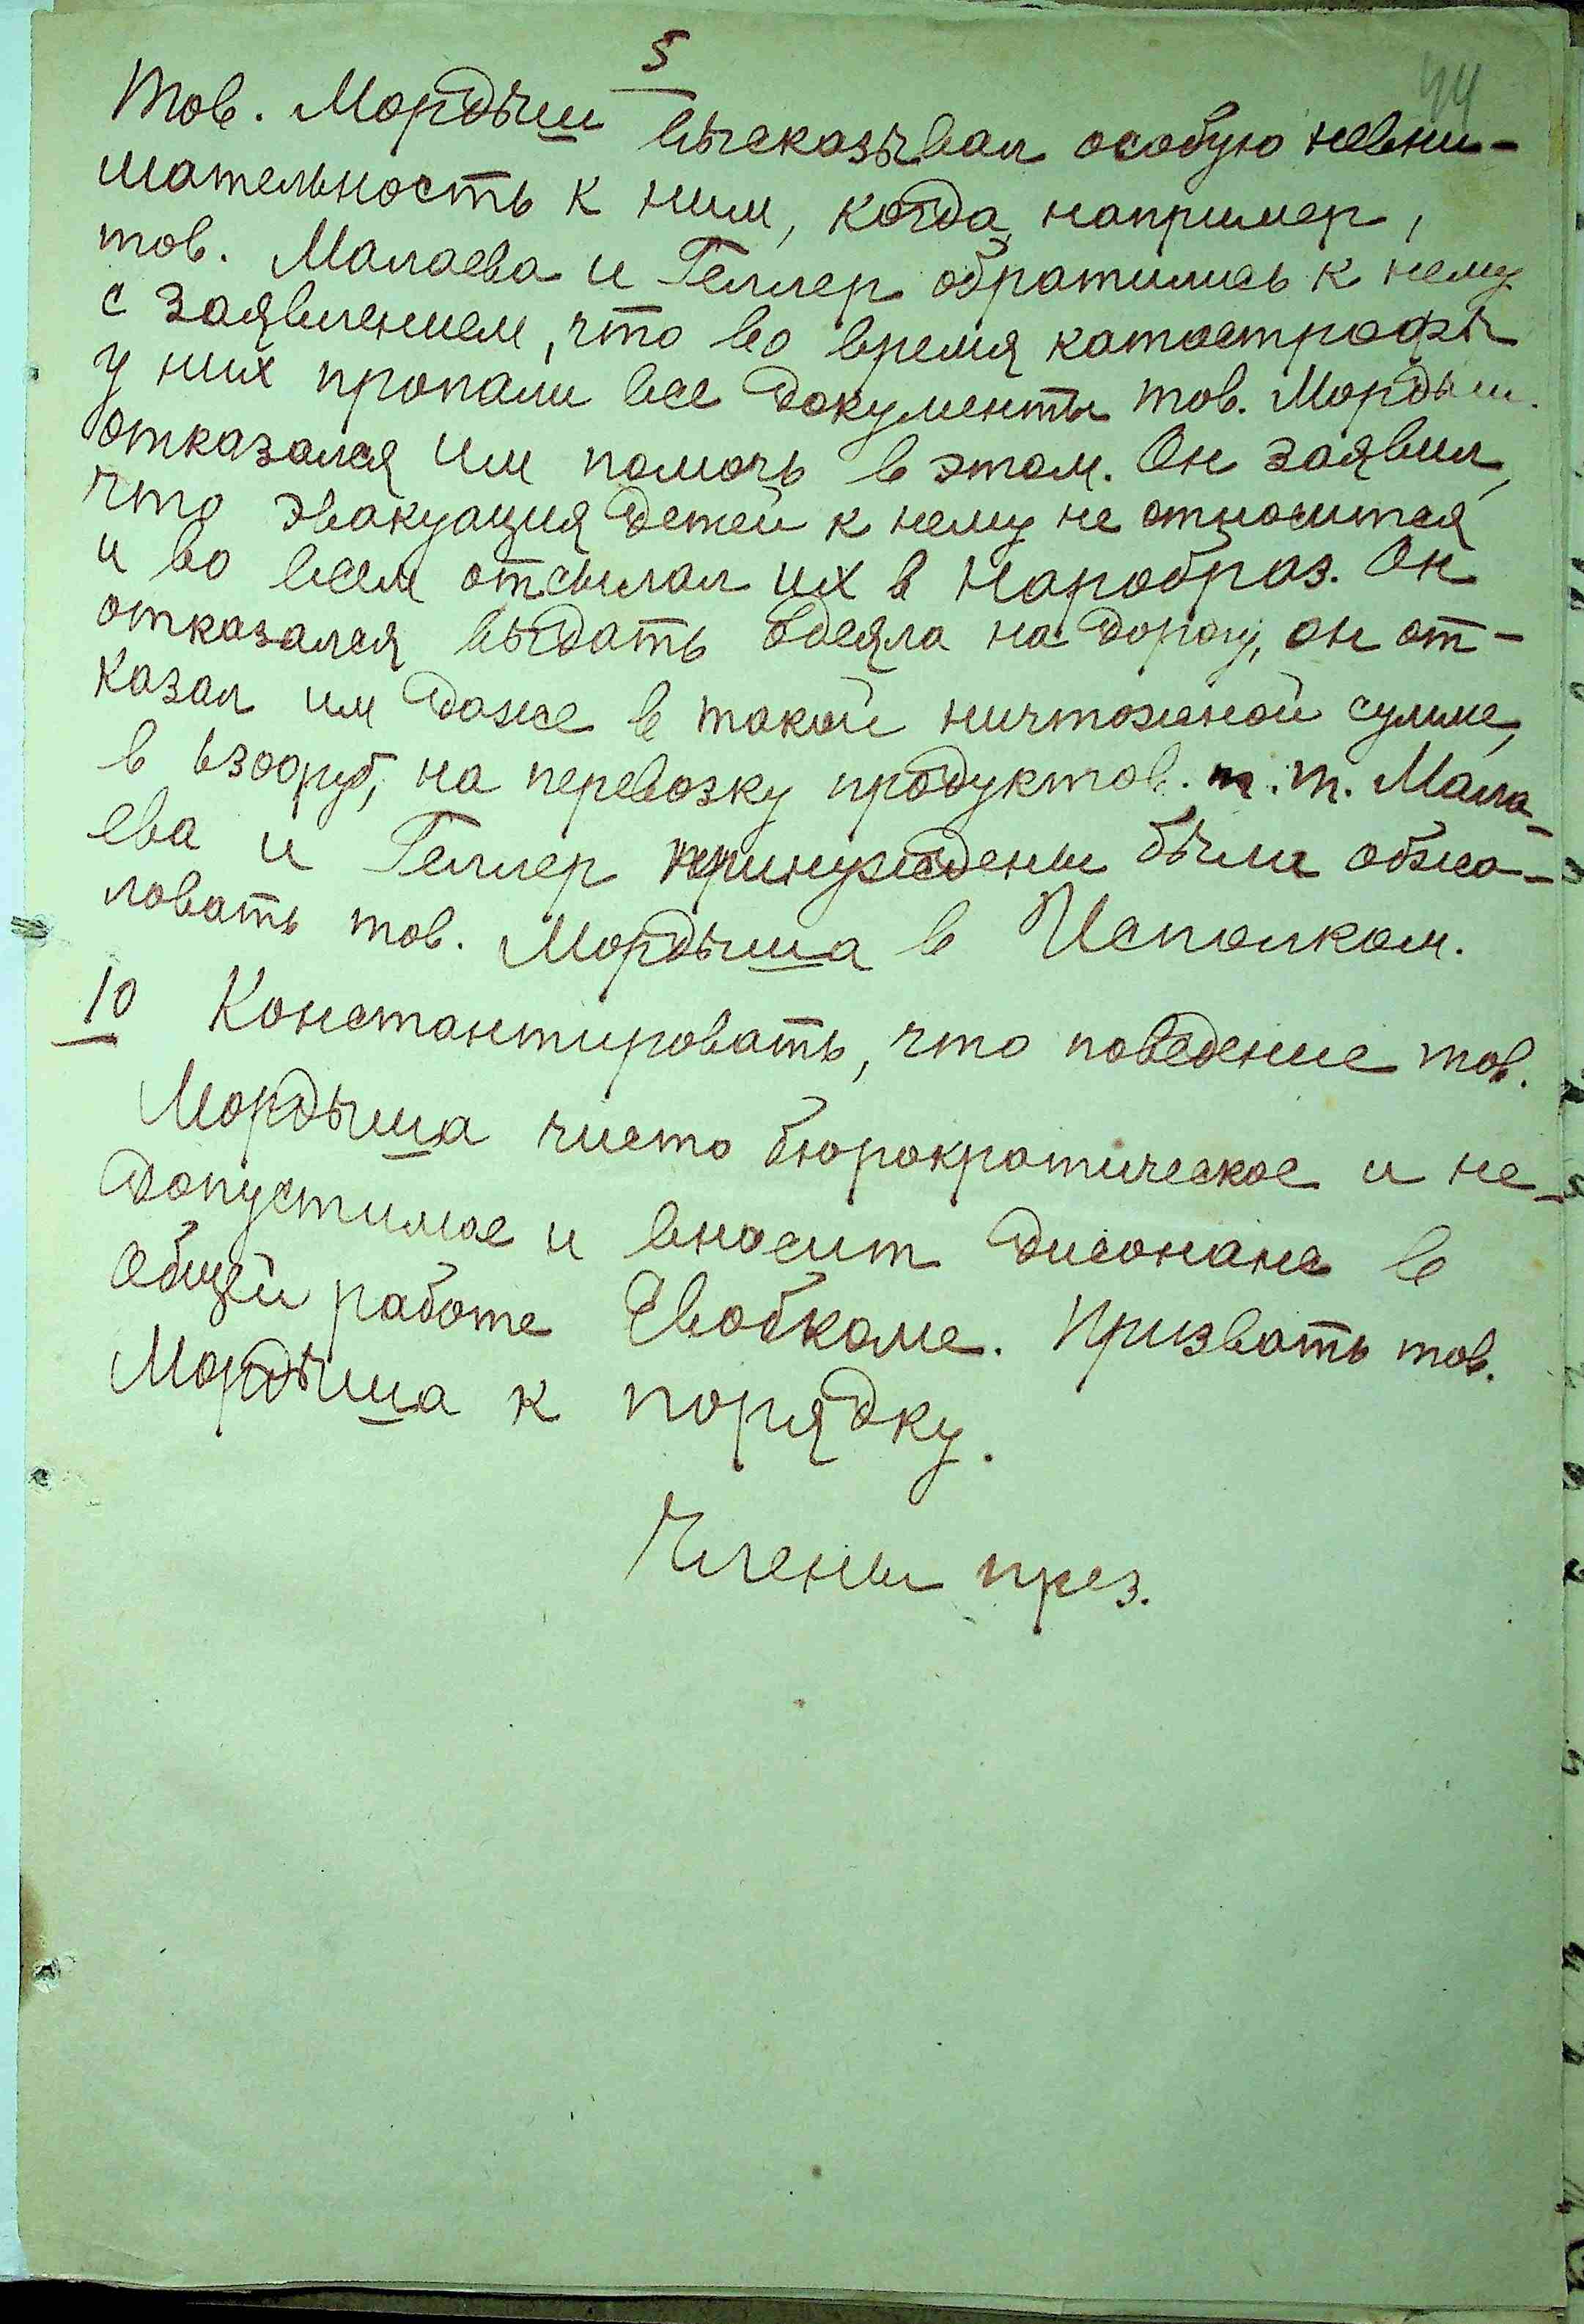 5
44
Тов. Мордыш высказывал особую невни-
мательность к ним, когда, например,
тов. Малаева и Геллер обратились к нему
с заявлением, что во время катастрофы
у них пропали все документы тов. Мордыш.
отказался им помочь в этом. Он заявил,
что эвакуация детей к нему не относится
и во всем отсылал их в Наробраз. Он
отказался выдать одеяла на дорогу, он от-
казал им даже в такой ничтожной сумме,
в руб, на перевозку продуктов. т.т. Мала-
ева и Геллер принуждены были обжа-
ловать тов. Мордыша в Исполком.
10 Константировать, что поведение тов.
Мордыша чисто бюрократическое и не-
допустимое и вносит дисонанс в
общей работе Евобкоме. Призвать тов.
Мордыша к порядку.
Члены през.